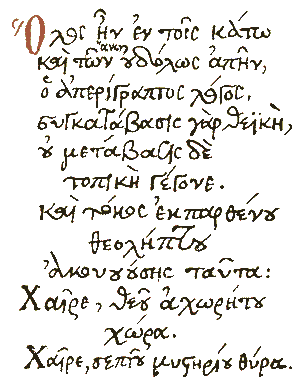 Ὅλος ἦν ἐν τοῖς κάτω
καὶ τῶν ἄνω οὐδόλως ἀπῆν,
ὁ ἀπερίγραπτος λόγος,
συγκατάβασις γὰρ θεϊκὴ,
οὐ μετάβασις δὲ
τοπικὴ γέγονε.
καὶ τόκος ἐκ παρθένου
θεολήπτου
ἀκουούσης ταῦτα:
Χαῖρε, θεοῦ ἀχωρήτου
χώρα.
Χαῖρε, σεπτοῦ μυστηρίου θύρα.